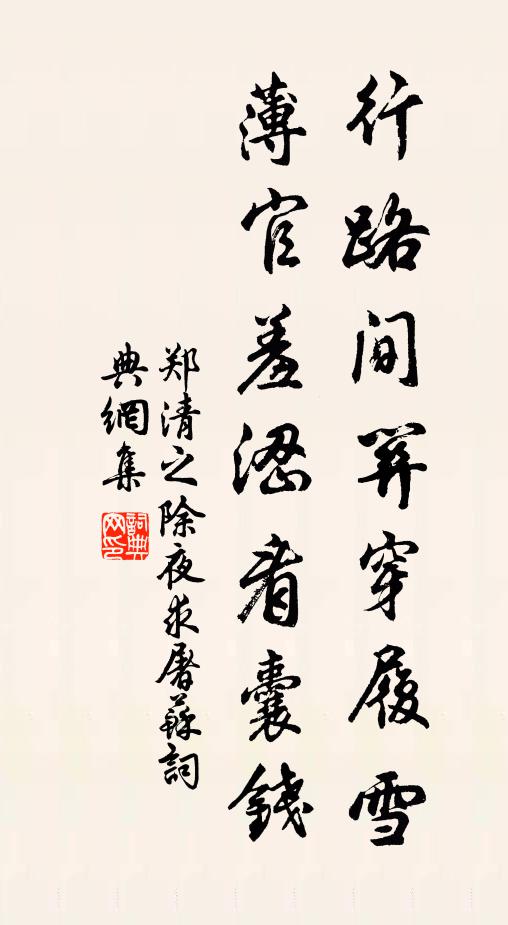 行路间关穿履雪
薄官羞涩看囊钱
郑清之除夜求屠苏词
典网集
詞典网印